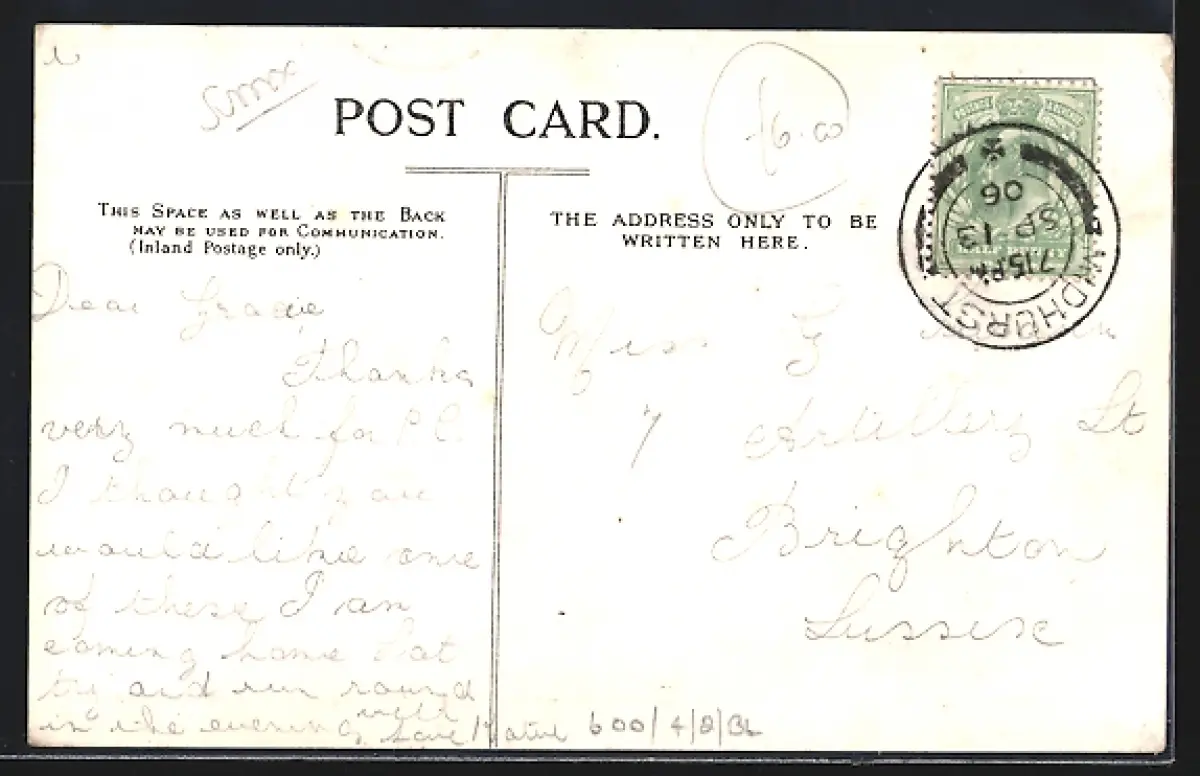 Sussex
POST CARD.
£6.00
THIS SPACE AS WELL AS THE BACK
MAY BE USED FOR COMMUNICATION.
(Inland Postage only.)
THE ADDRESS ONLY TO BE
WRITTEN HERE.
HALF PENNY
7.15 PM
SP 13
06
Dear Gracie
Thanks
very much for P.C.
I thought you
would like one
of these I am
coming home Sat
try and run round
in the evening with love Katie
Miss G
7 Artillery St
Brighton
Sussex
600/4/8/36